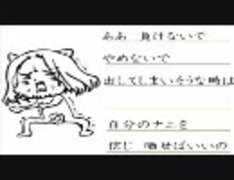 ああ 負けないで
やめないで
出してしまいそうな時は
自分のナニを
信じ 晒せばいいの